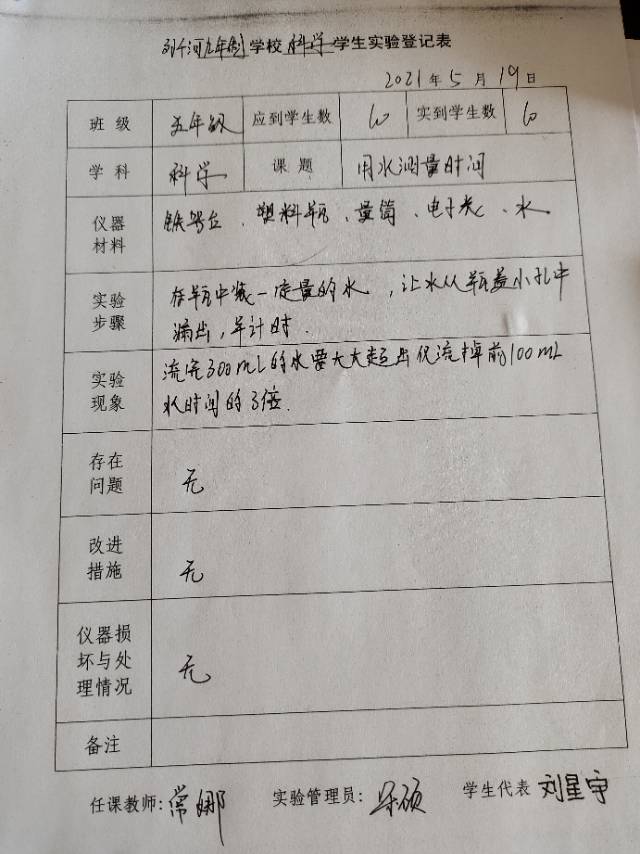 孙河九年制学校科学学生实验登记表
2021年5月19日
班级 五年级 应到学生数 10 实到学生数 10
学科 科学 课题 用水测量时间
仪器材料 铁架台、塑料瓶、量筒、电子表、水
实验步骤 在瓶中装一定量的水,让水从瓶盖小孔中
漏出,并计时.
实验现象 流完300mL的水要大大超出仅流掉前100mL
水时间的3倍.
存在问题 无
改进措施 无
仪器损坏与处理情况 无
备注
任课教师:常娜 实验管理员: 硕 学生代表 刘星宇